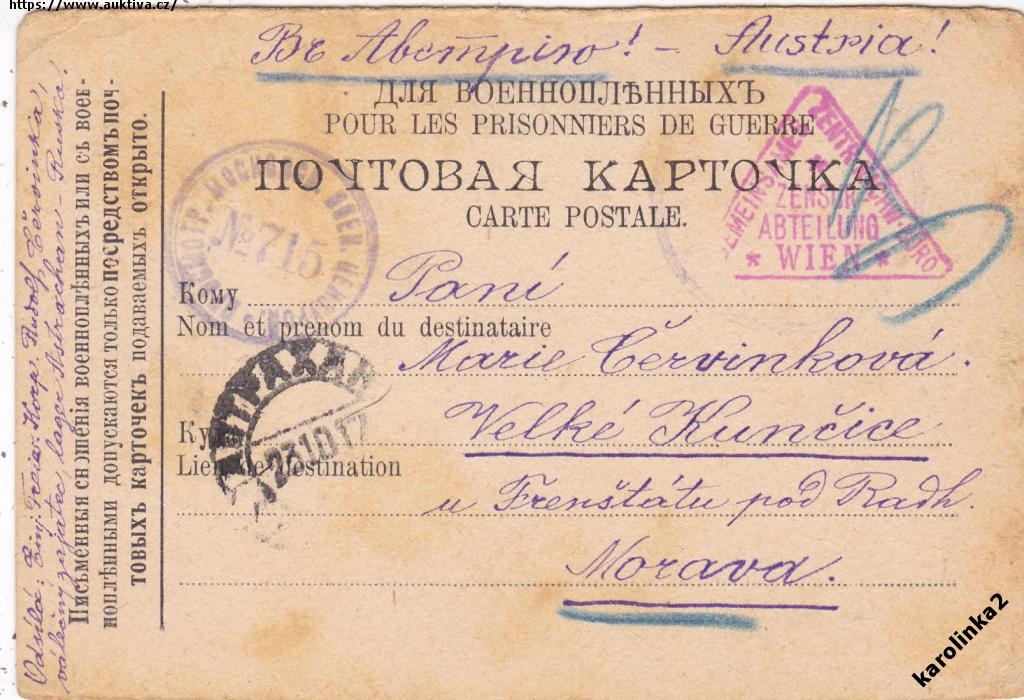 https://www.auktiva.cz/
Въ Австрію! - Austria!
ДЛЯ ВОЕННОПЛѢННЫХЪ
POUR LES PRISONNIERS DE GUERRE
ПОЧТОВАЯ КАРТОЧКА
CARTE POSTALE.
№ 715
ZENSUR
ABTEILUNG
* WIEN *
Кому Paní
Nom et prenom du destinataire
Marie Červinková.
АСТРАХАНЬ
23.10.17
Куда Velké Kunčice
Lieu de destination
u Frenštátu pod Radh.
Morava.
Odsílá: Einj. Freiw. Korp. Rudolf Červinka,
válečný zajatec, lager Astrachan - Rusko!
Письменныя сношенія военноплѣнныхъ или съ воен-
ноплѣнными допускаются только посредствомъ поч-
товыхъ карточекъ подаваемыхъ открыто.
karolinka2